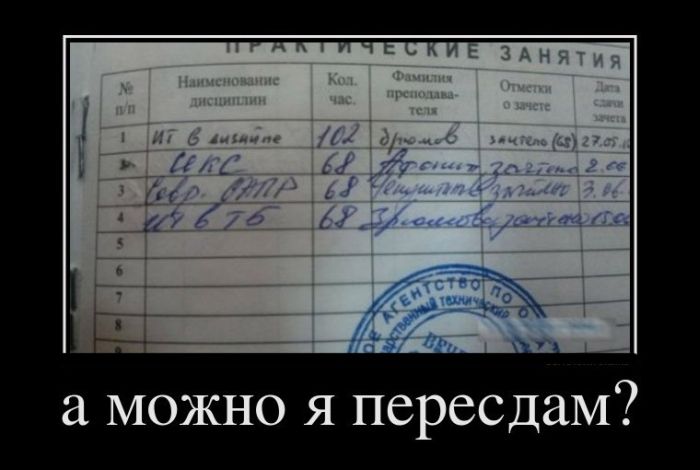 ПРАКТИЧЕСКИЕ ЗАНЯТИЯ
№ п/п Наименование дисциплин Кол. час. Фамилия преподавателя Отметки о зачете Дата сдачи зачета
1 ИТ в дизайне 102 зачтено (68) 27.05
2 СЕКС 68 Афонин зачтено 2.06
3 Совр. 68 зачтено 3.06
4 ИЧ в ТБ 68 зачтено 15.06
5
6
7
8
9
АГЕНТСТВО ПО О
ТЕХНИЧЕСКИЙ
а можно я пересдам?